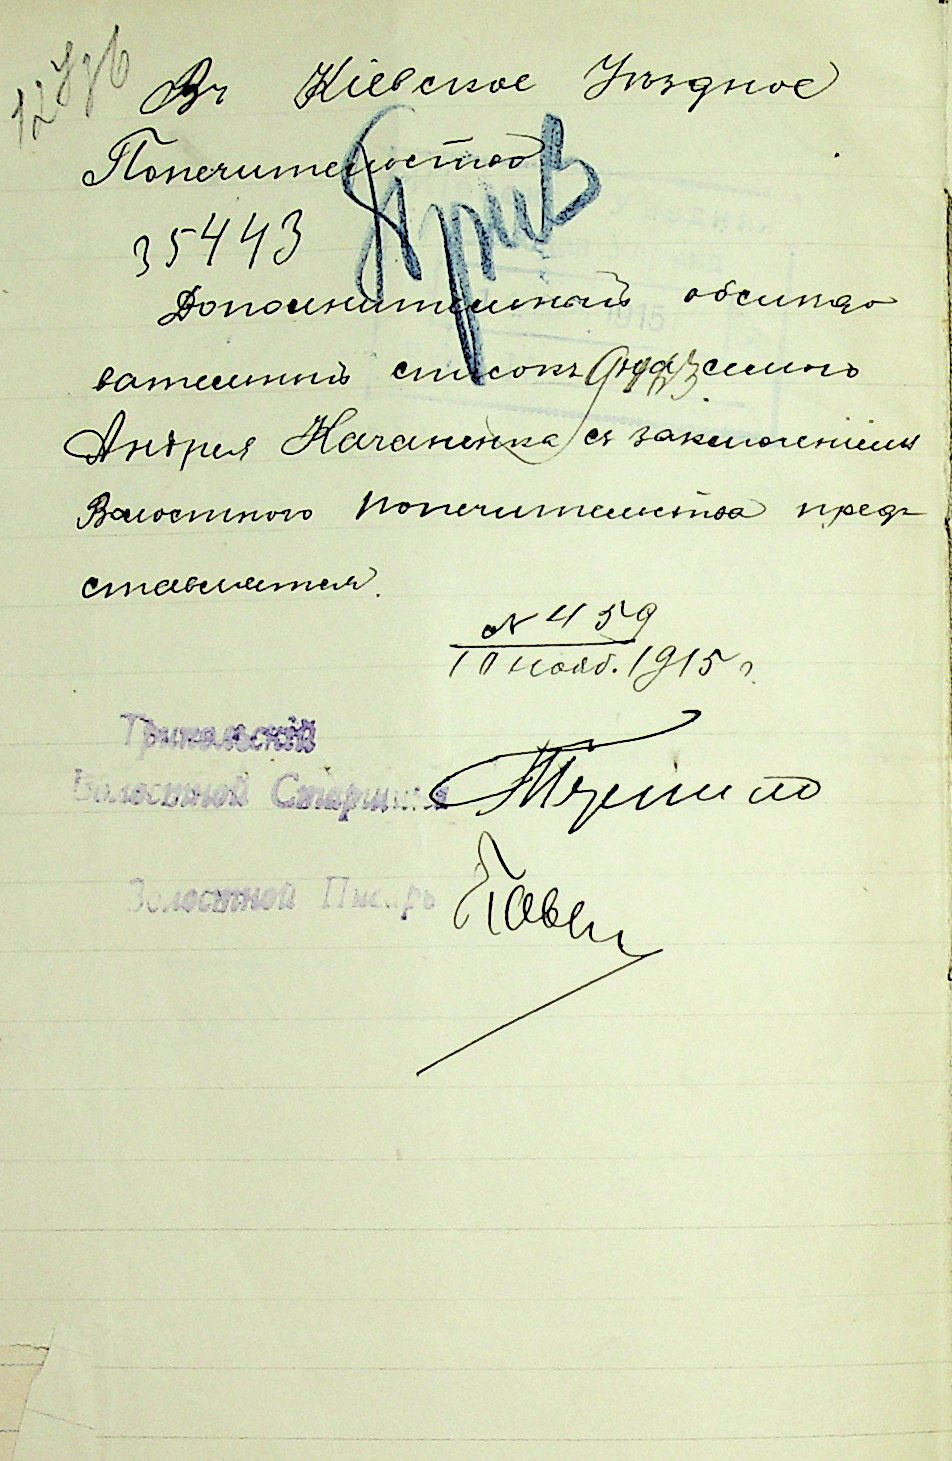 Въ Кіевское Уѣздное
Попечительство
35443
Дополнительный обслѣдо
вательный списокъ семьи
Андрея Качаненка съ заключеніемъ
Волостного попечительства пред-
ставляется.
№ 459
10 нояб. 1915 г.
Трипольскій
Волостной Старшина
Волостной Писарь